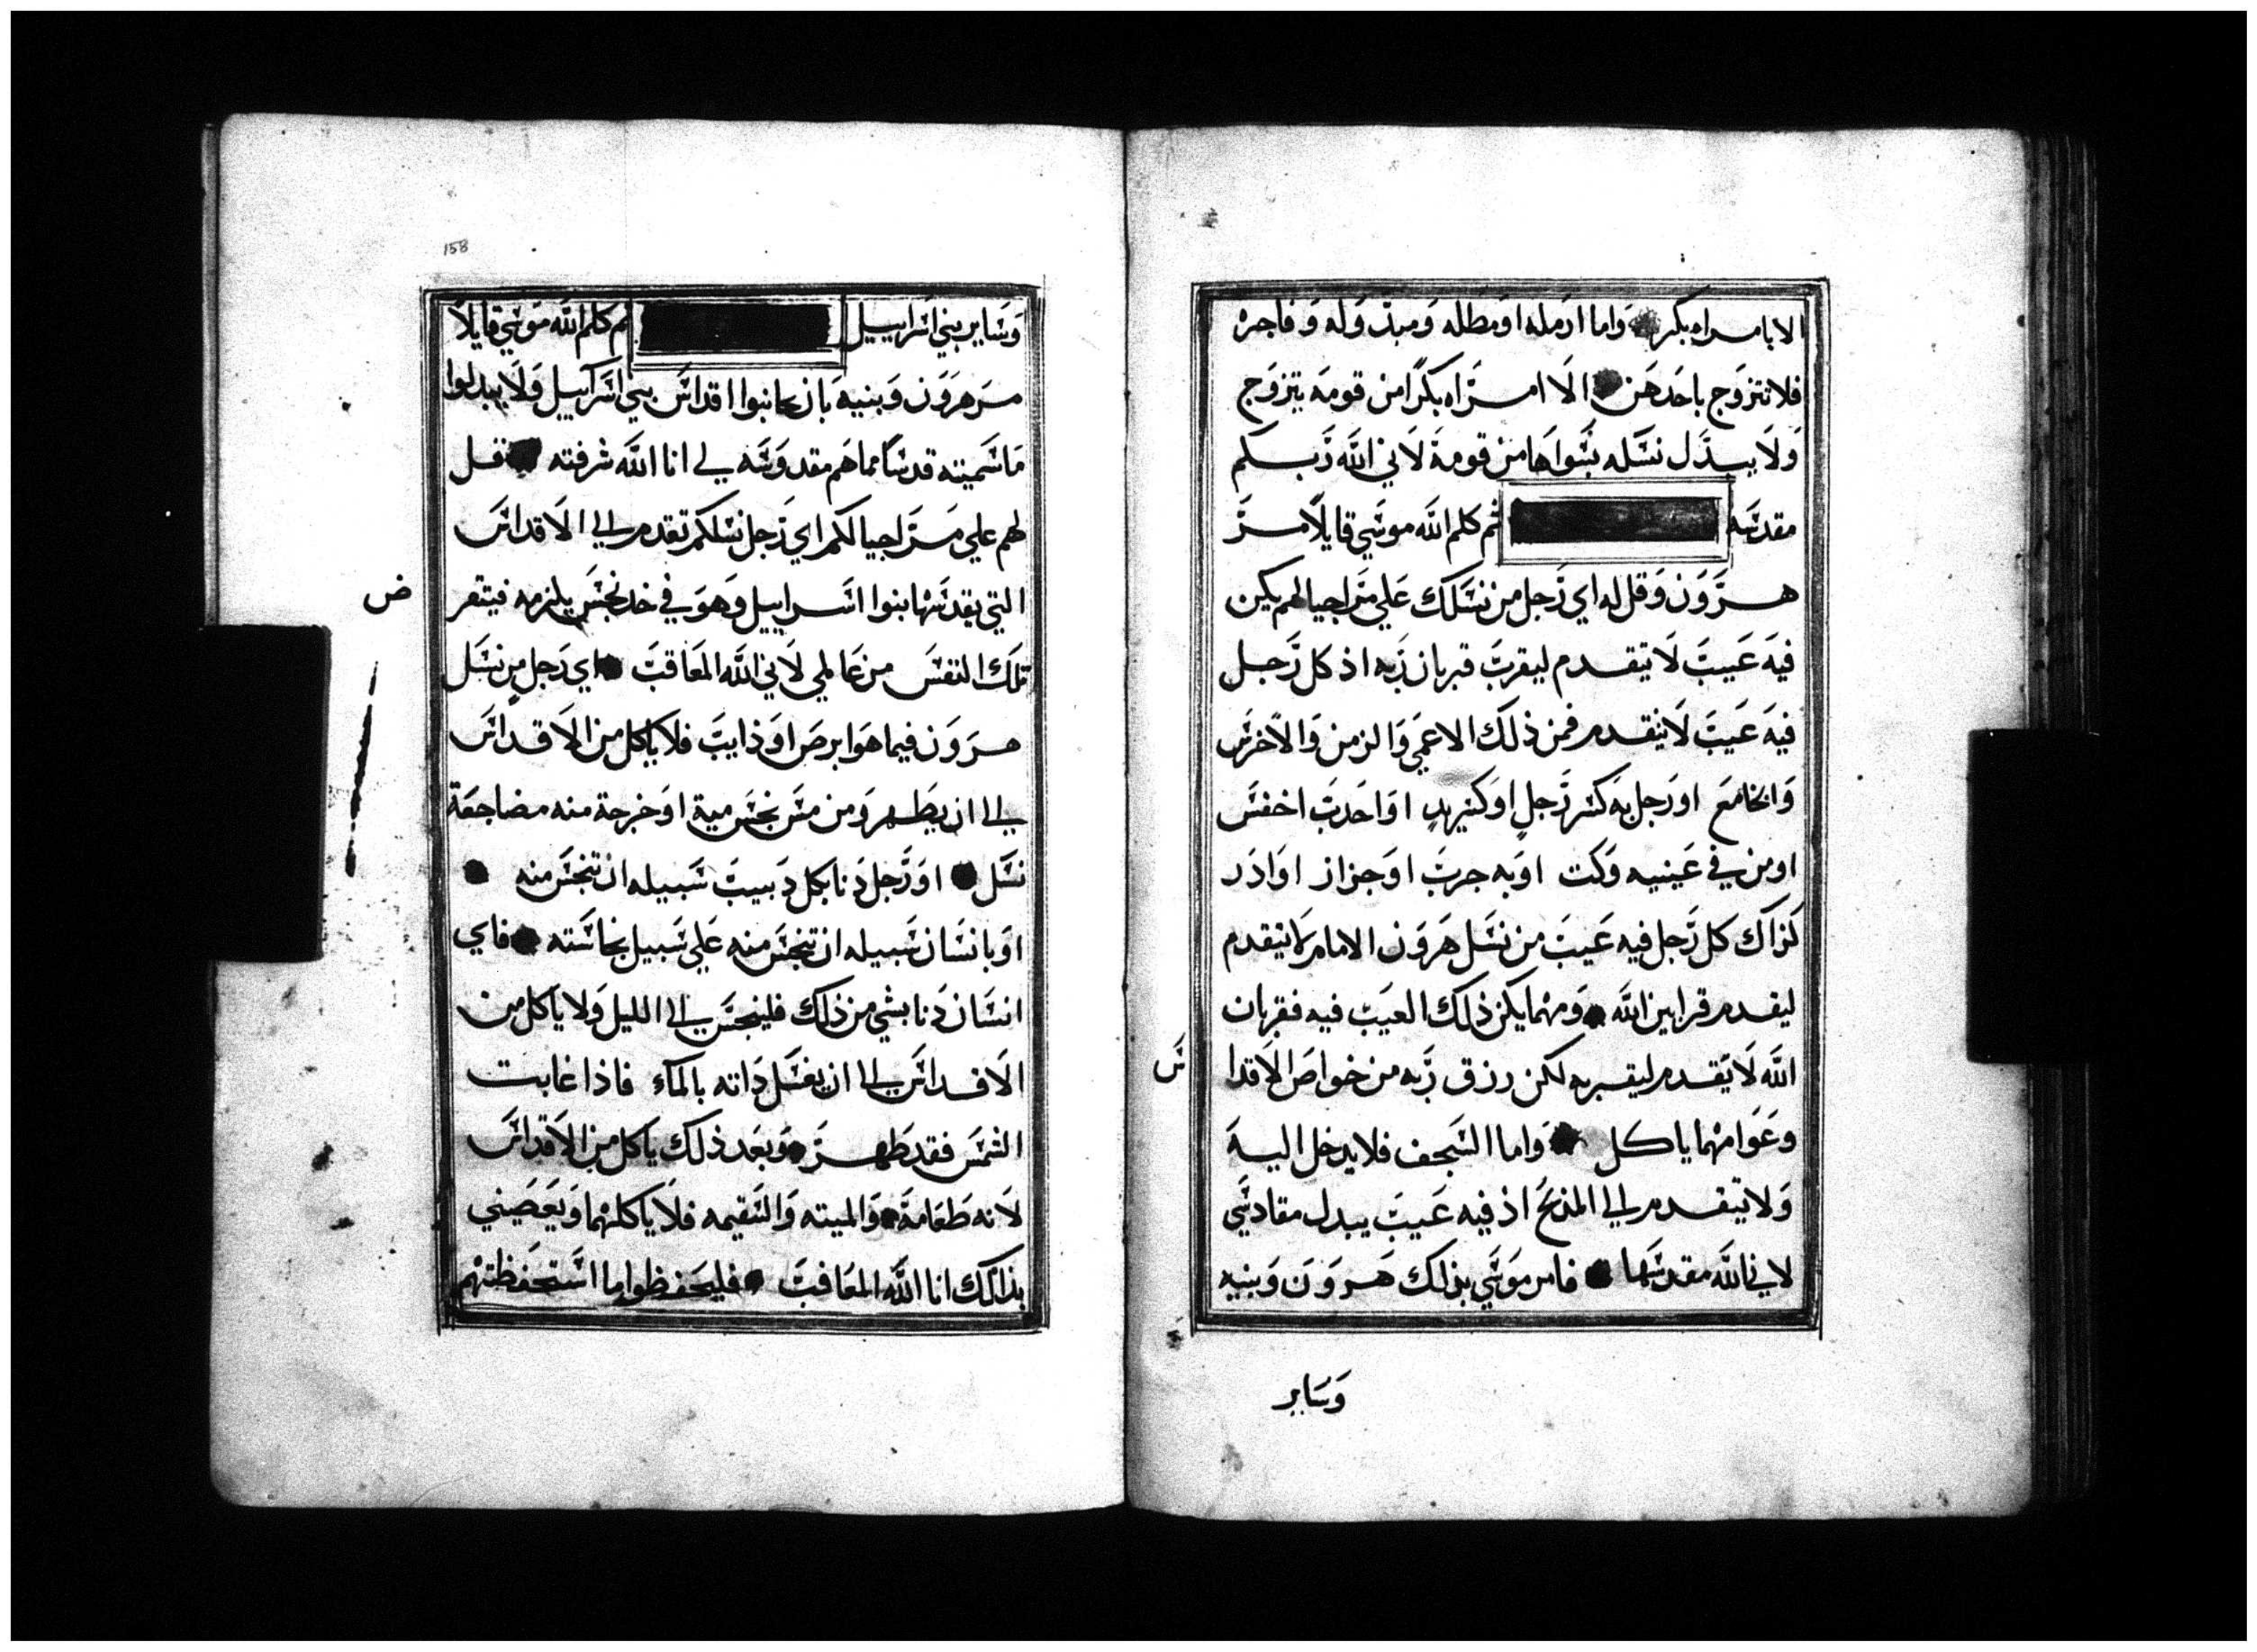 الا بامراه بكر واما ارمله او مطله ومبدوله وفاجره
فلا تتزوج باحدهن الا امراه بكرا من قومه يتزوج
ولا يبدل نسله بسواها من قومه لاني الله ربكم
مقدسه ثم كلم الله موسي قايلا مر
هرون وقل له اي رجل من نسلك علي مر اجيالهم يكن
فيه عيب لا يتقدم ليقرب قربان ربه اذ كل رجل
فيه عيب لا يتقدم فمن ذلك الاعمي والزمن والاخرس
والخامع او رجل به كسر رجل او كسر يد او احدب اخفس
او من في عينيه وكت او به جرب او حزاز او ادر
كذاك كل رجل فيه عيب من نسل هرون الامام لا يتقدم
ليقدم قرابين الله ومهما يكن ذلك العيب فيه فقربان
الله لا يقدم ليقربه لكن رزق ربه من خواص الاقدا
س
وعوامهما ياكل واما السجف فلا يدخل اليه
ولا يتقدم الي المذبح اذ فيه عيب يبدل مقادسي
لاني الله مقدسها فامر موسي بذلك هرون وبنيه
وساير
158
وساير بني اسراييل ثم كلم الله موسي قايلا
مر هرون وبنيه بان يجانبوا اقداس بني اسراييل ولا يبدلوا
ما سميته قدسا مما هم مقدوسه لي انا الله شرفته قل
لهم علي مر اجيالكم اي رجل نسلكم تقدم الي الاقداس
التي يقدسها بنوا اسراييل وهو في خد نجس يلزمه فيتقر
ض
تلك النفس من عالمي لاني الله المعاقب اي رجل من نسل
هرون فيما هو ابرص او ذايب فلا ياكل من الاقداس
الي ان يطهر ومن مس نجس مية او خرجة منه مضاجعة
نسل او رجل دنا بكل دبيب سبيله ان تنجس منه
او بانسان سبيله ان تنجس منه علي سبيل نجاسته فاي
انسان دنا بشي من ذلك فلينجس الي الليل ولا ياكل من
الاقداس الي ان يغسل ذاته بالماء فاذا غابت
الشمس فقد طهر وبعد ذلك ياكل من الاقداس
لانه طعامه والميته والسقيمه فلا ياكلهما ويعصيني
بذالك انا الله المعاقب فليحفظوا ما استحفظتهم